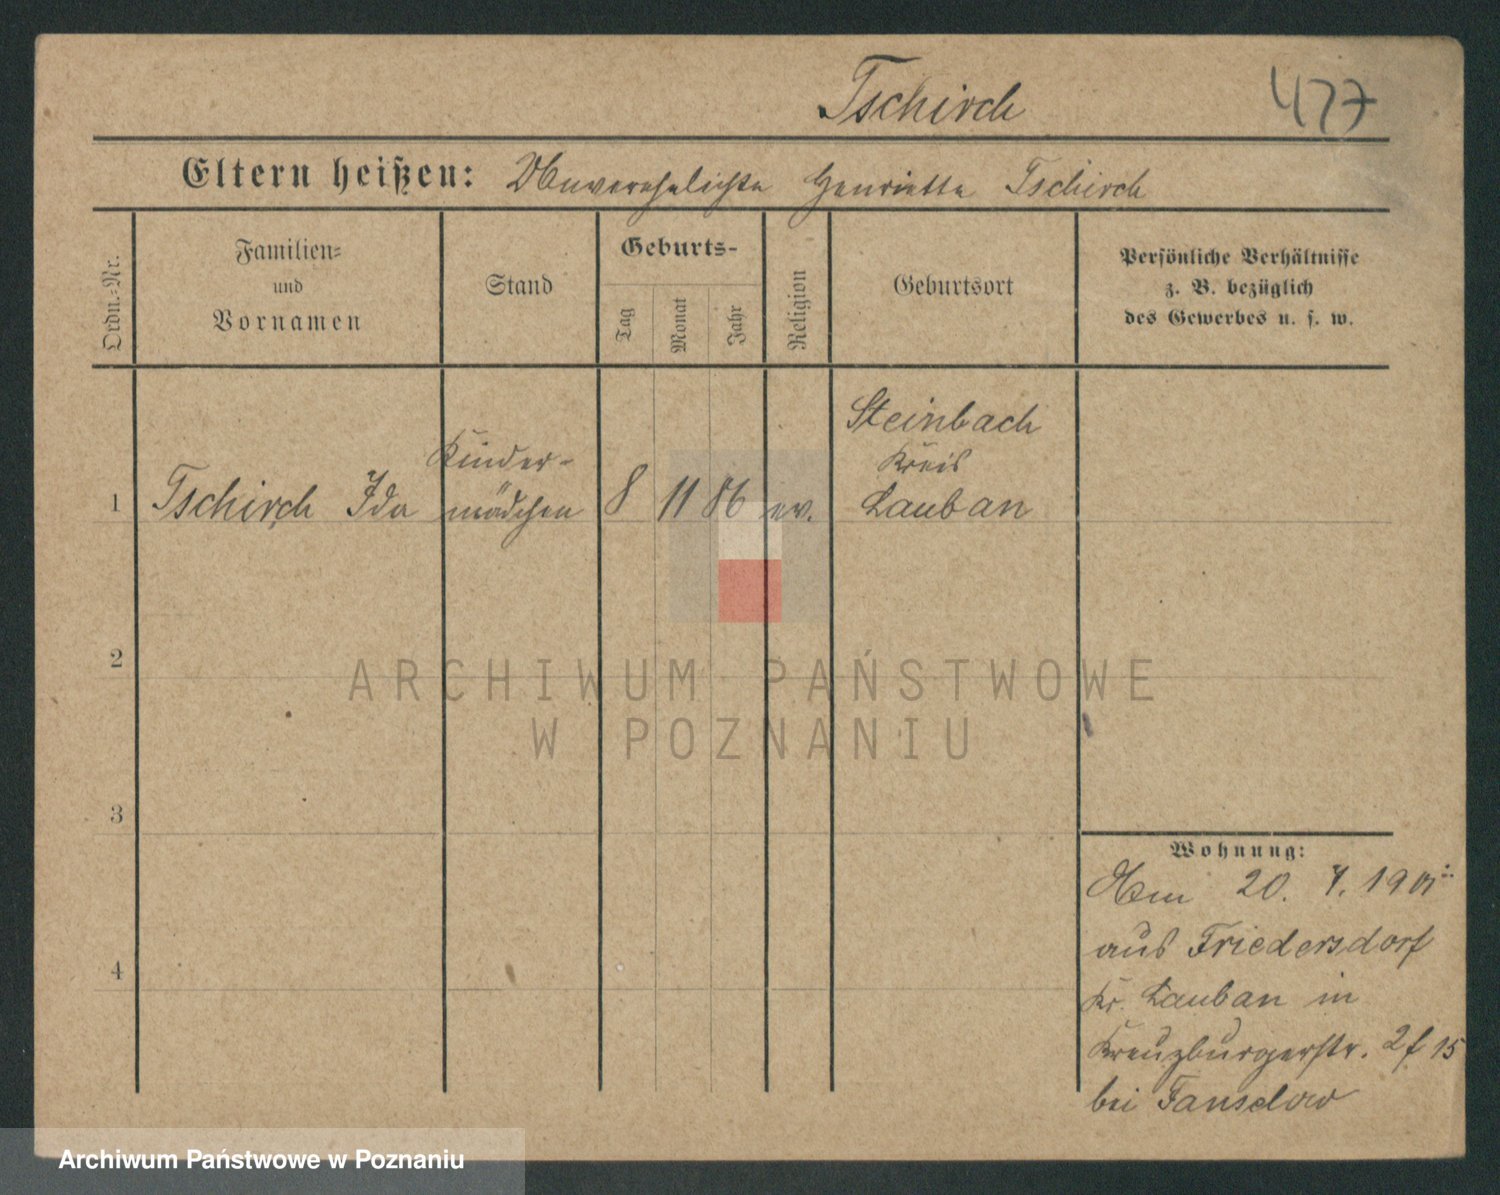 Tschirch
477
Eltern heißen: Unverehelichte Henriette Tschirch
Ordn.-Nr.
Familien-
und
Vornamen
Stand
Geburts-
Tag
Monat
Jahr
Religion
Geburtsort
Persönliche Verhältnisse
z. B. bezüglich
des Gewerbes u. s. w.
1
Tschirch Ida
Kinder-
mädchen
8
11
86
ev.
Steinbach
Kreis
Lauban
2
3
4
Wohnung:
20. 7. 1901
aus Friedersdorf
Kr. Lauban in
Kreuzburgerstr. 15
bei Fanselow
ARCHIWUM PAŃSTWOWE
W POZNANIU
Archiwum Państwowe w Poznaniu